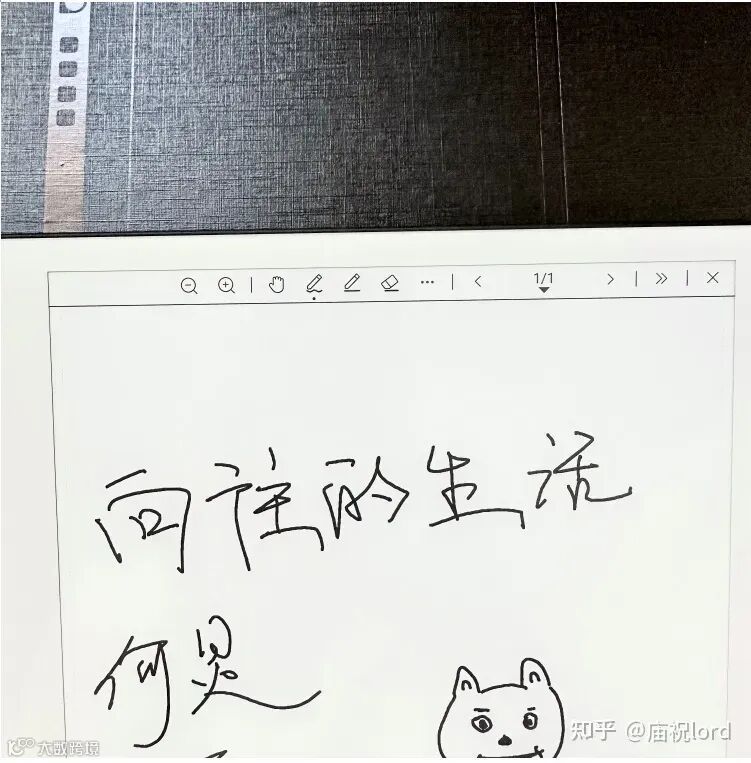 1/1
向往的生活
何炅
知乎 @庙祝lord
大数跨境